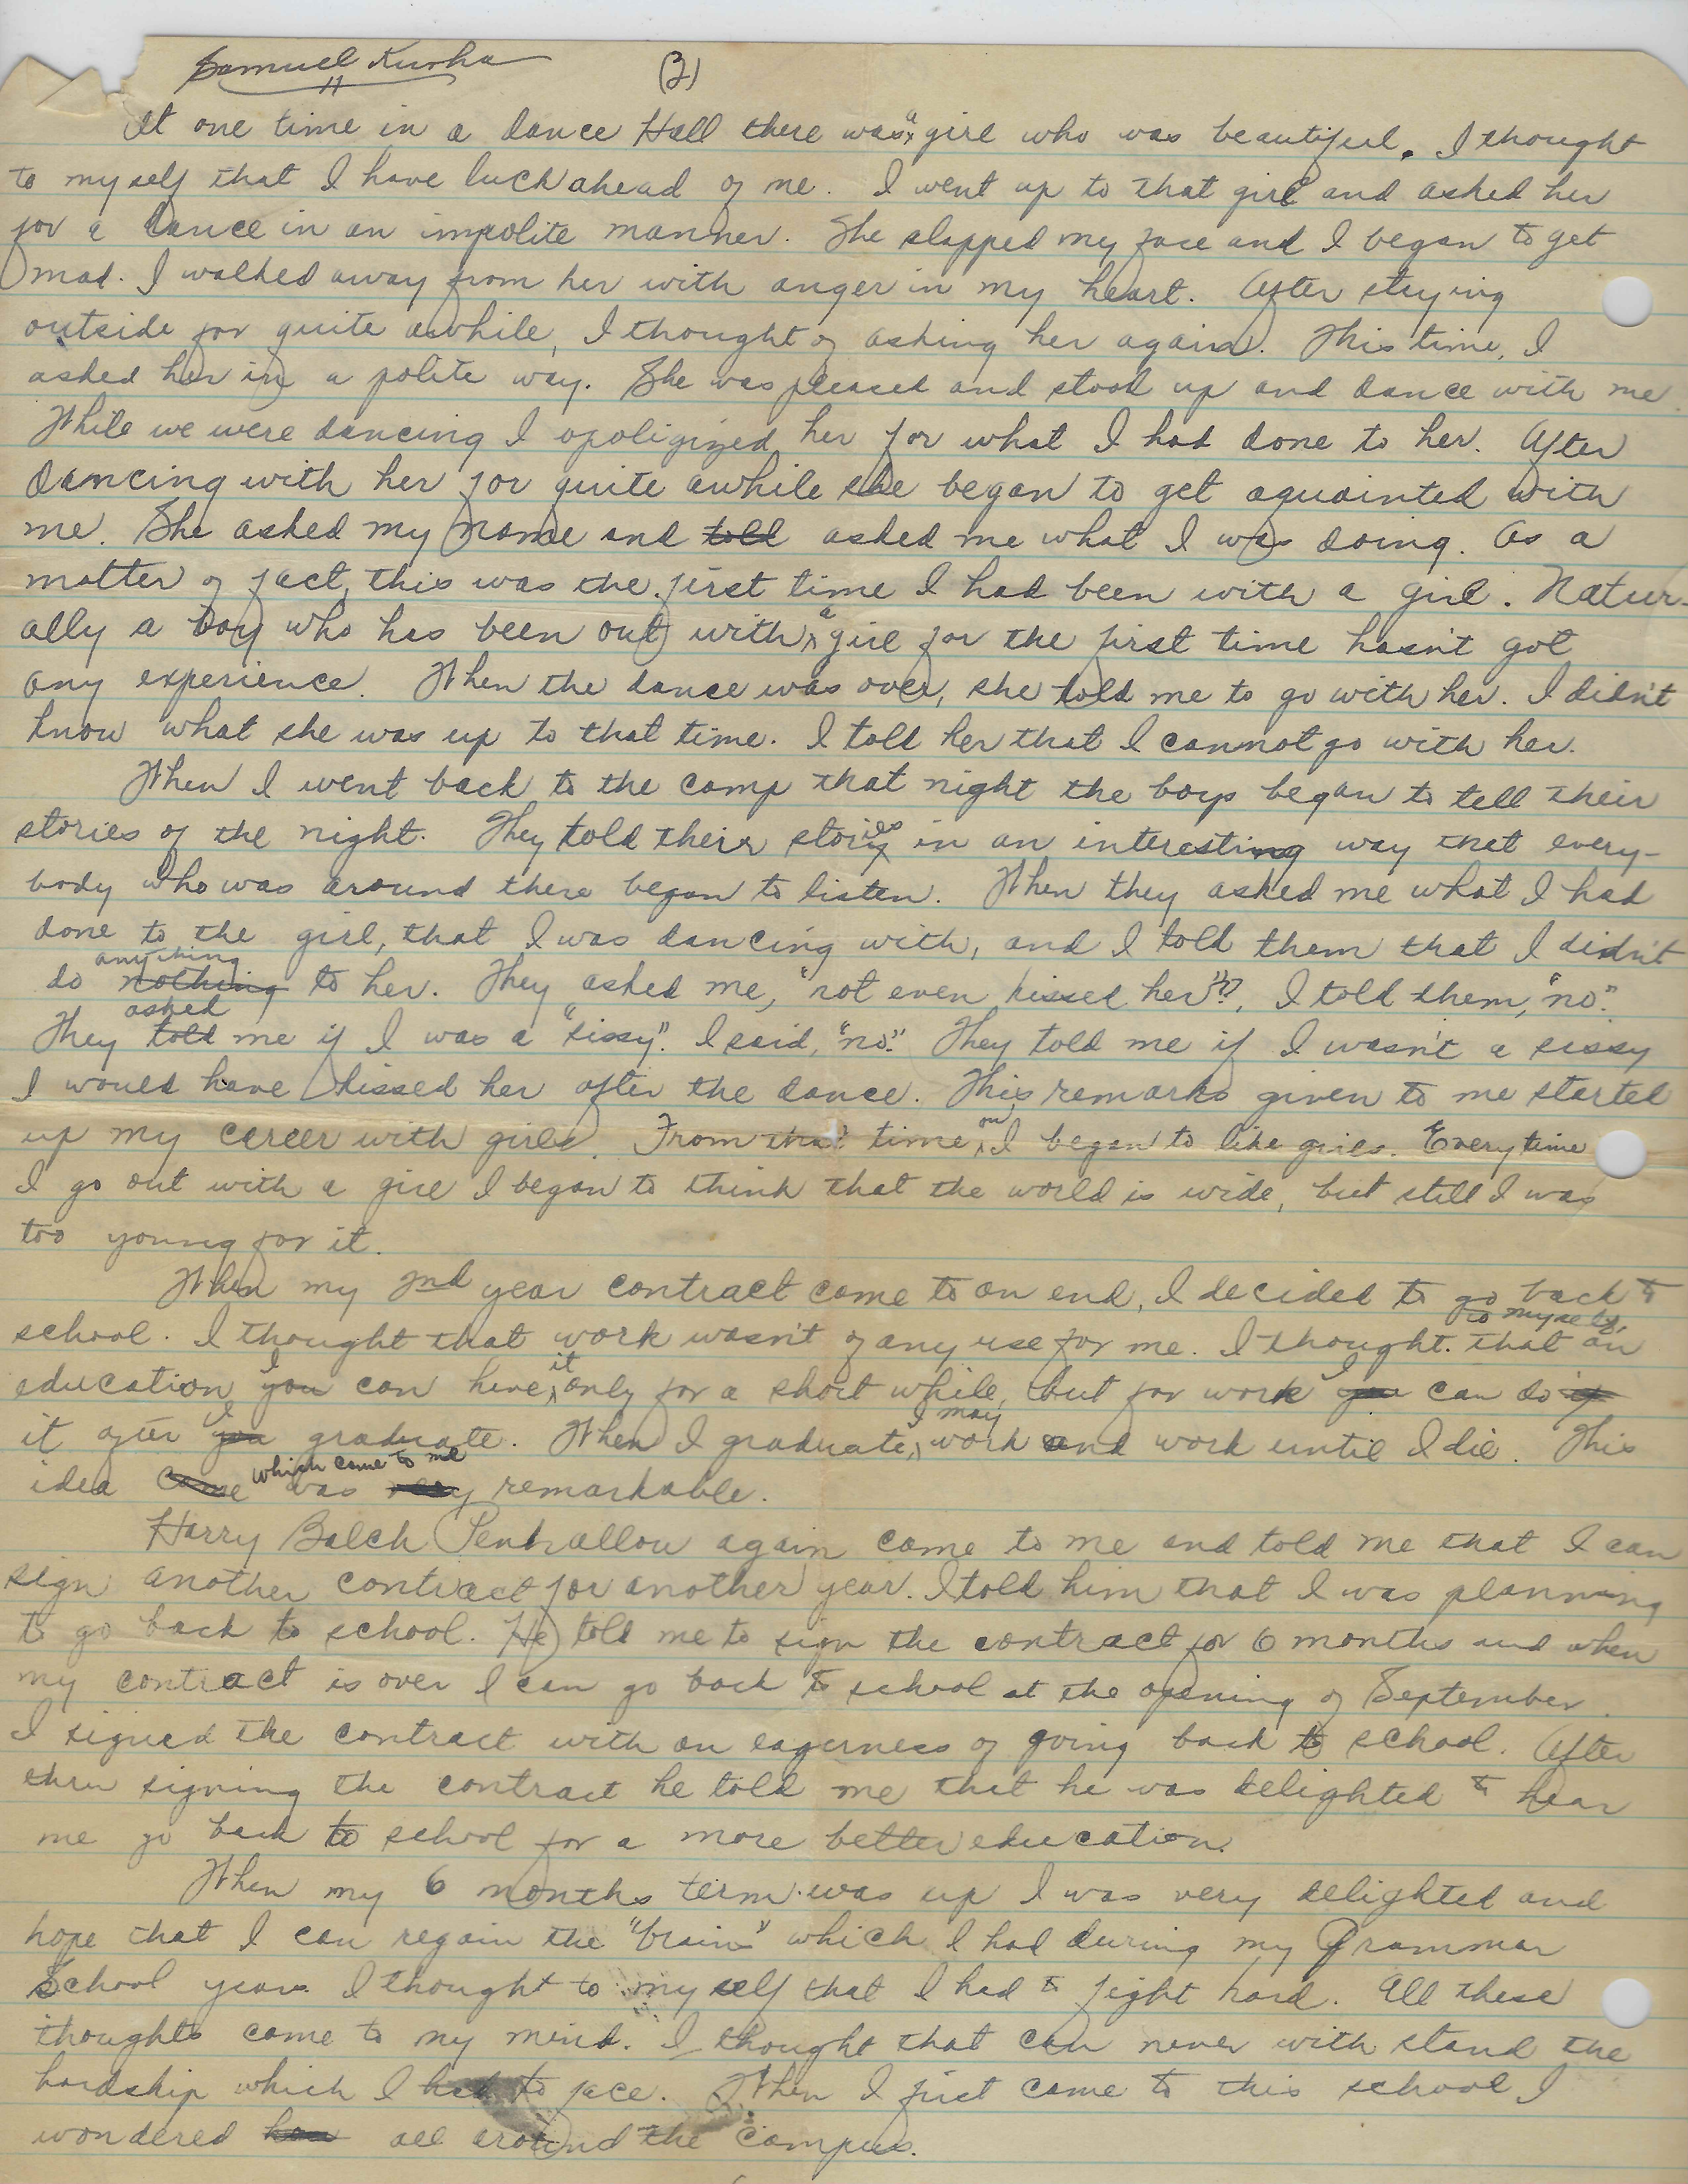 Samuel Kuoha (3)
At one time in a dance Hall there was a girl who was beautiful. I thought
to myself that I have luck ahead of me. I went up to that girl and asked her
for a dance in an impolite manner. She slapped my face and I began to get
mad. I walked away from her with anger in my heart. After staying
outside for quite awhile, I thought of asking her again. This time, I
asked her in a polite way. She was pleased and stood up and dance with me.
While we were dancing I apoligized her for what I had done to her. After
dancing with her for quite awhile she began to get aquainted with
me. She asked my name and told asked me what I was doing. As a
matter of fact, this was the first time I had been with a girl. Natur-
ally a boy who has been out with a girl for the first time hasn't got
any experience. When the dance was over, she told me to go with her. I didn't
know what she was up to that time. I told her that I cannot go with her.
When I went back to the camp that night the boys began to tell their
stories of the night. They told their stories in an interesting way that every-
body who was around there began to listen. When they asked me what I had
done to the girl, that I was dancing with, and I told them that I didn't
do nothing anything to her. They asked me, "not even kissed her"?, I told them, "no".
They told asked me if I was a "sissy". I said, "no". They told me if I wasn't a sissy
I would have kissed her after the dance. This remarks given to me started
up my career with girls. From that time on, I began to like girls. Every time
I go out with a girl I began to think that the world is wide, but still I was
too young for it.
When my 2nd year contract came to an end, I decided to go back to
school. I thought that work wasn't of any use for me. I thought to myself, that an
education you I can have it only for a short while, but for work you I can do
it after you I graduate. When I graduate, I may work and work until I die. This
idea came which came to me was very remarkable.
Harry Balch Penhallow again came to me and told me that I can
sign another contract for another year. I told him that I was planning
to go back to school. He told me to sign the contract for 6 months and when
my contract is over I can go back to school at the opening of September.
I signed the contract with an eagerness of going back to school. After
thru signing the contract he told me that he was delighted to hear
me go back to school for a more better education.
When my 6 months term was up I was very delighted and
hope that I can regain the "brain" which I had during my Grammar
School years. I thought to myself that I had to fight hard. All these
thoughts came to my mind. I thought that can never with stand the
hardship which I had to face. When I first came to this school I
wondered all around the campus.